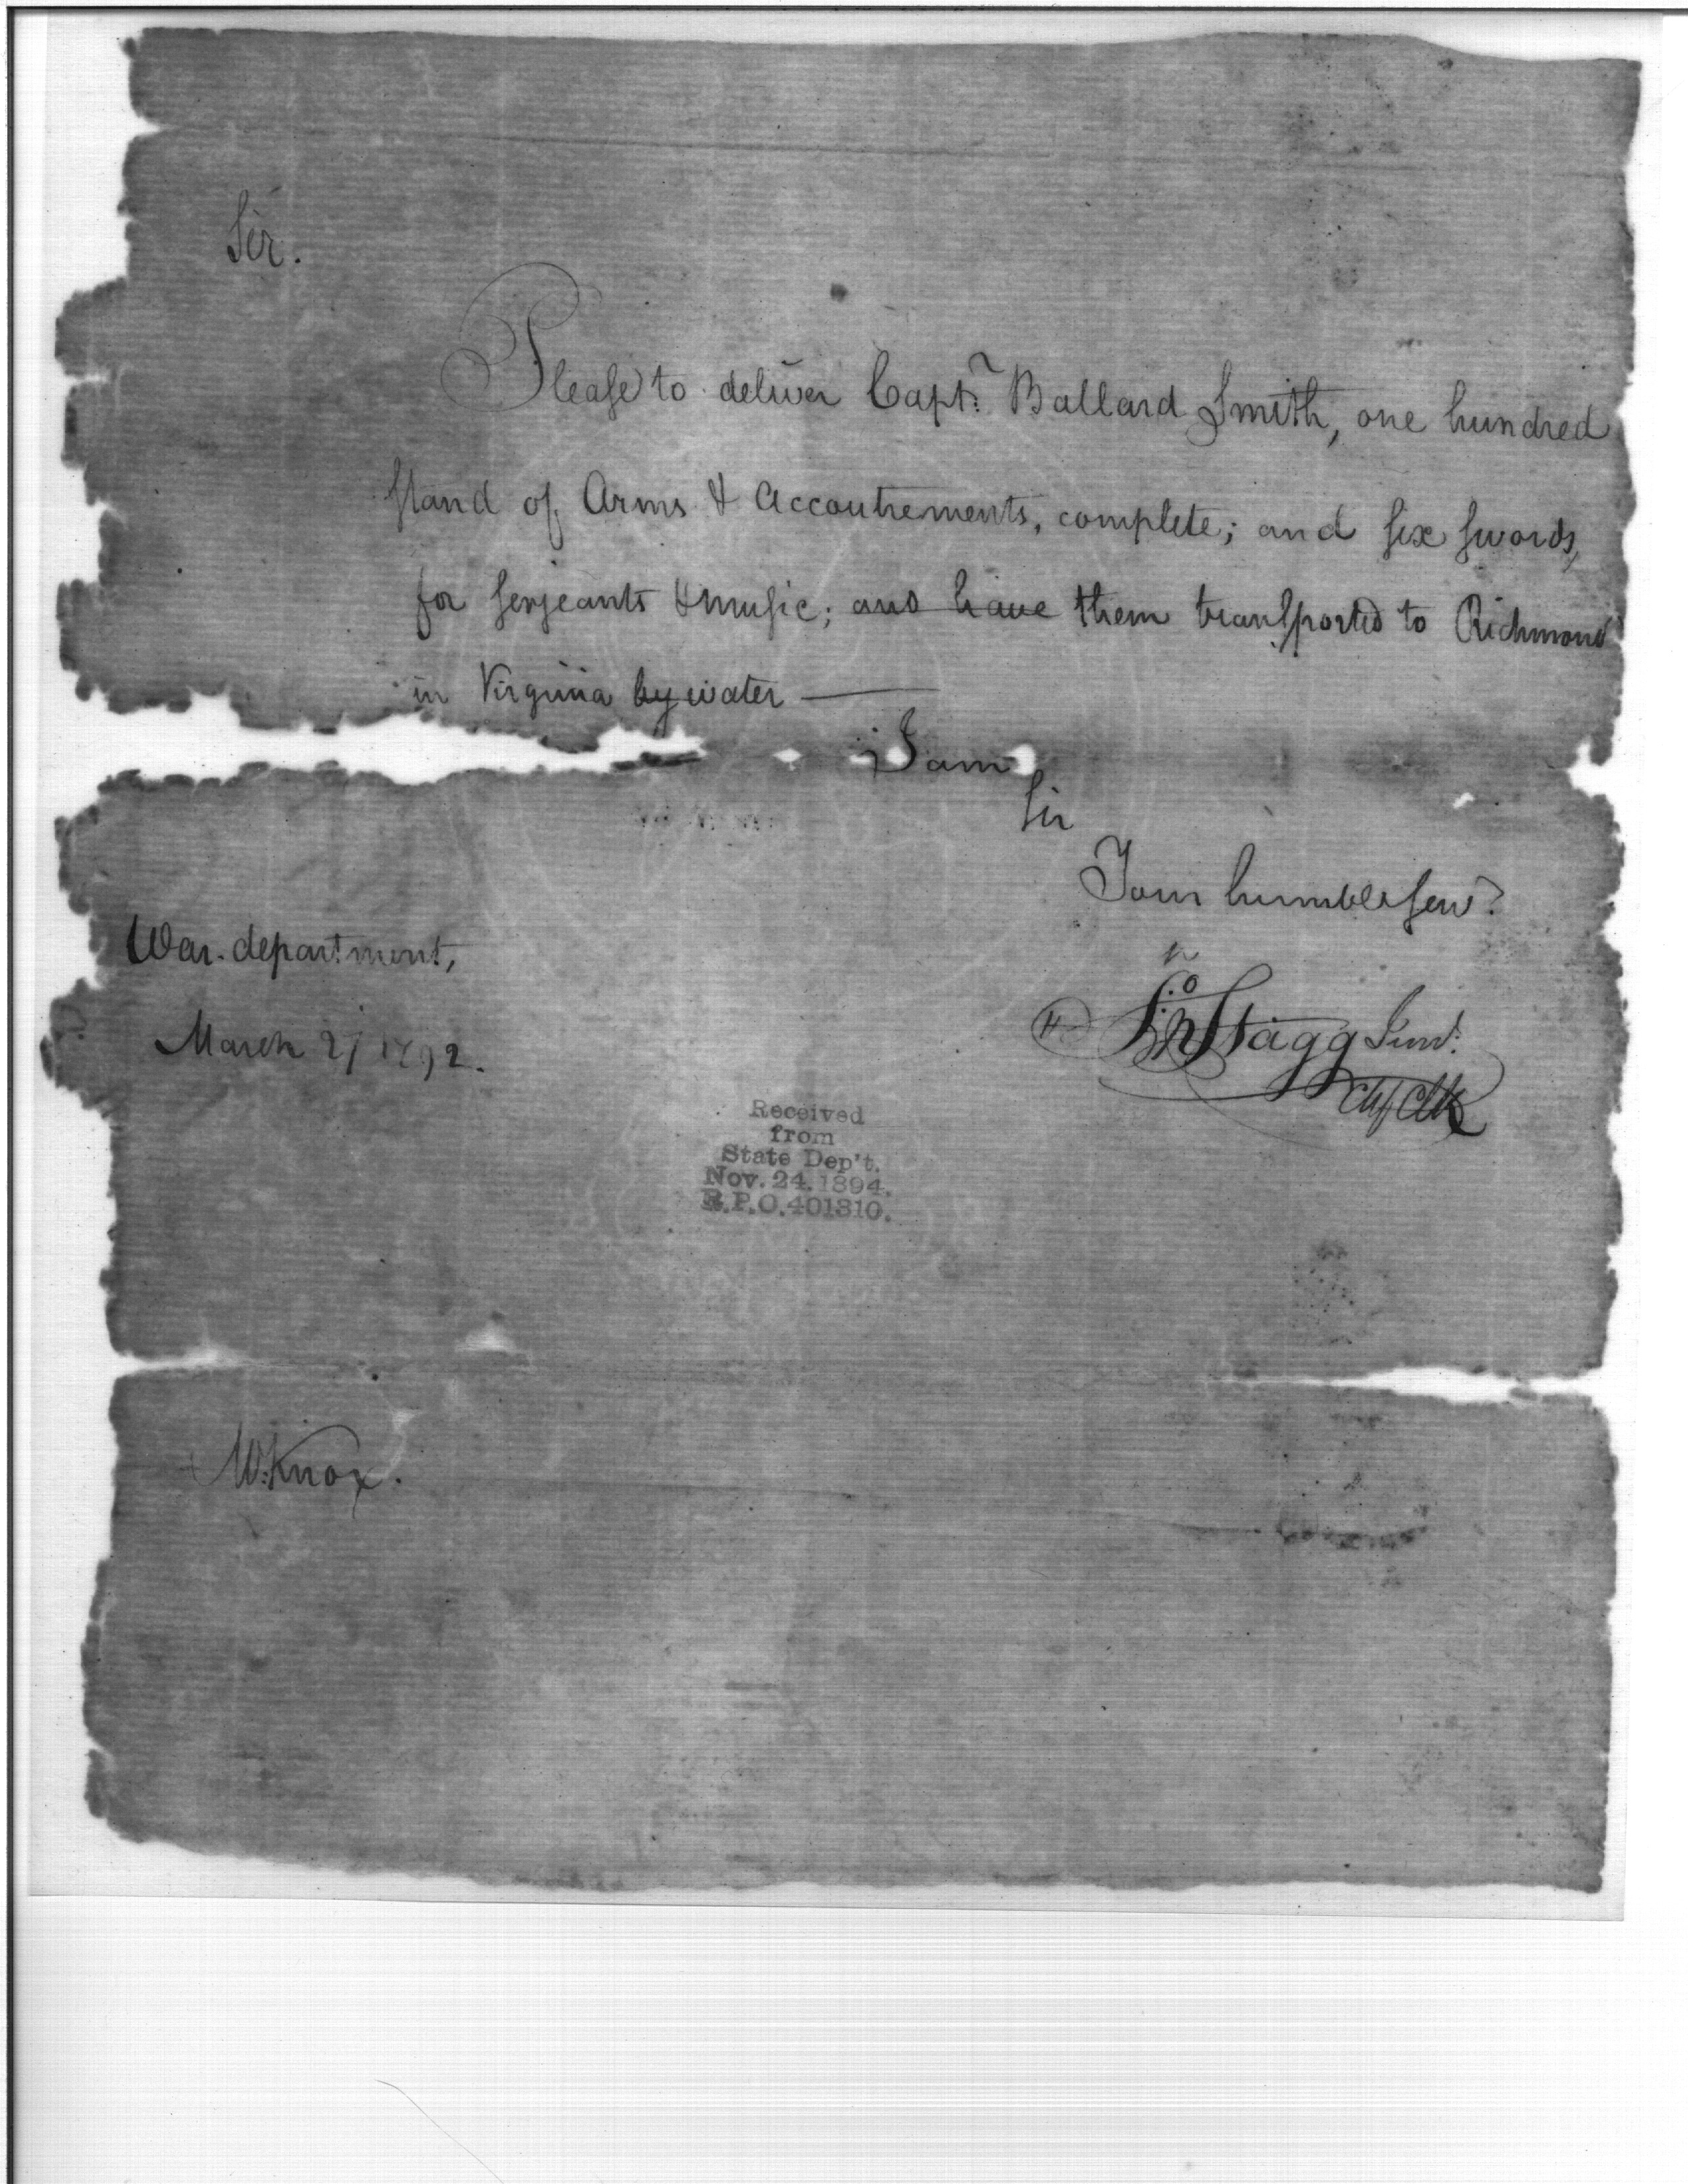 Sir.
Please to deliver Capt.n Ballard Smith, one hundred
stand of Arms & Accoutrements, complete; and six swords,
for serjeants & music; and have them transported to Richmond
in Virginia by water —
I am
Sir
Your humble serv.t
War department,
March 2 1792.
Jno Stagg Junr.
Chf Clk
Received
from
State Dep't.
Nov. 24. 1894.
R.P.O. 401310.
W. Knox.